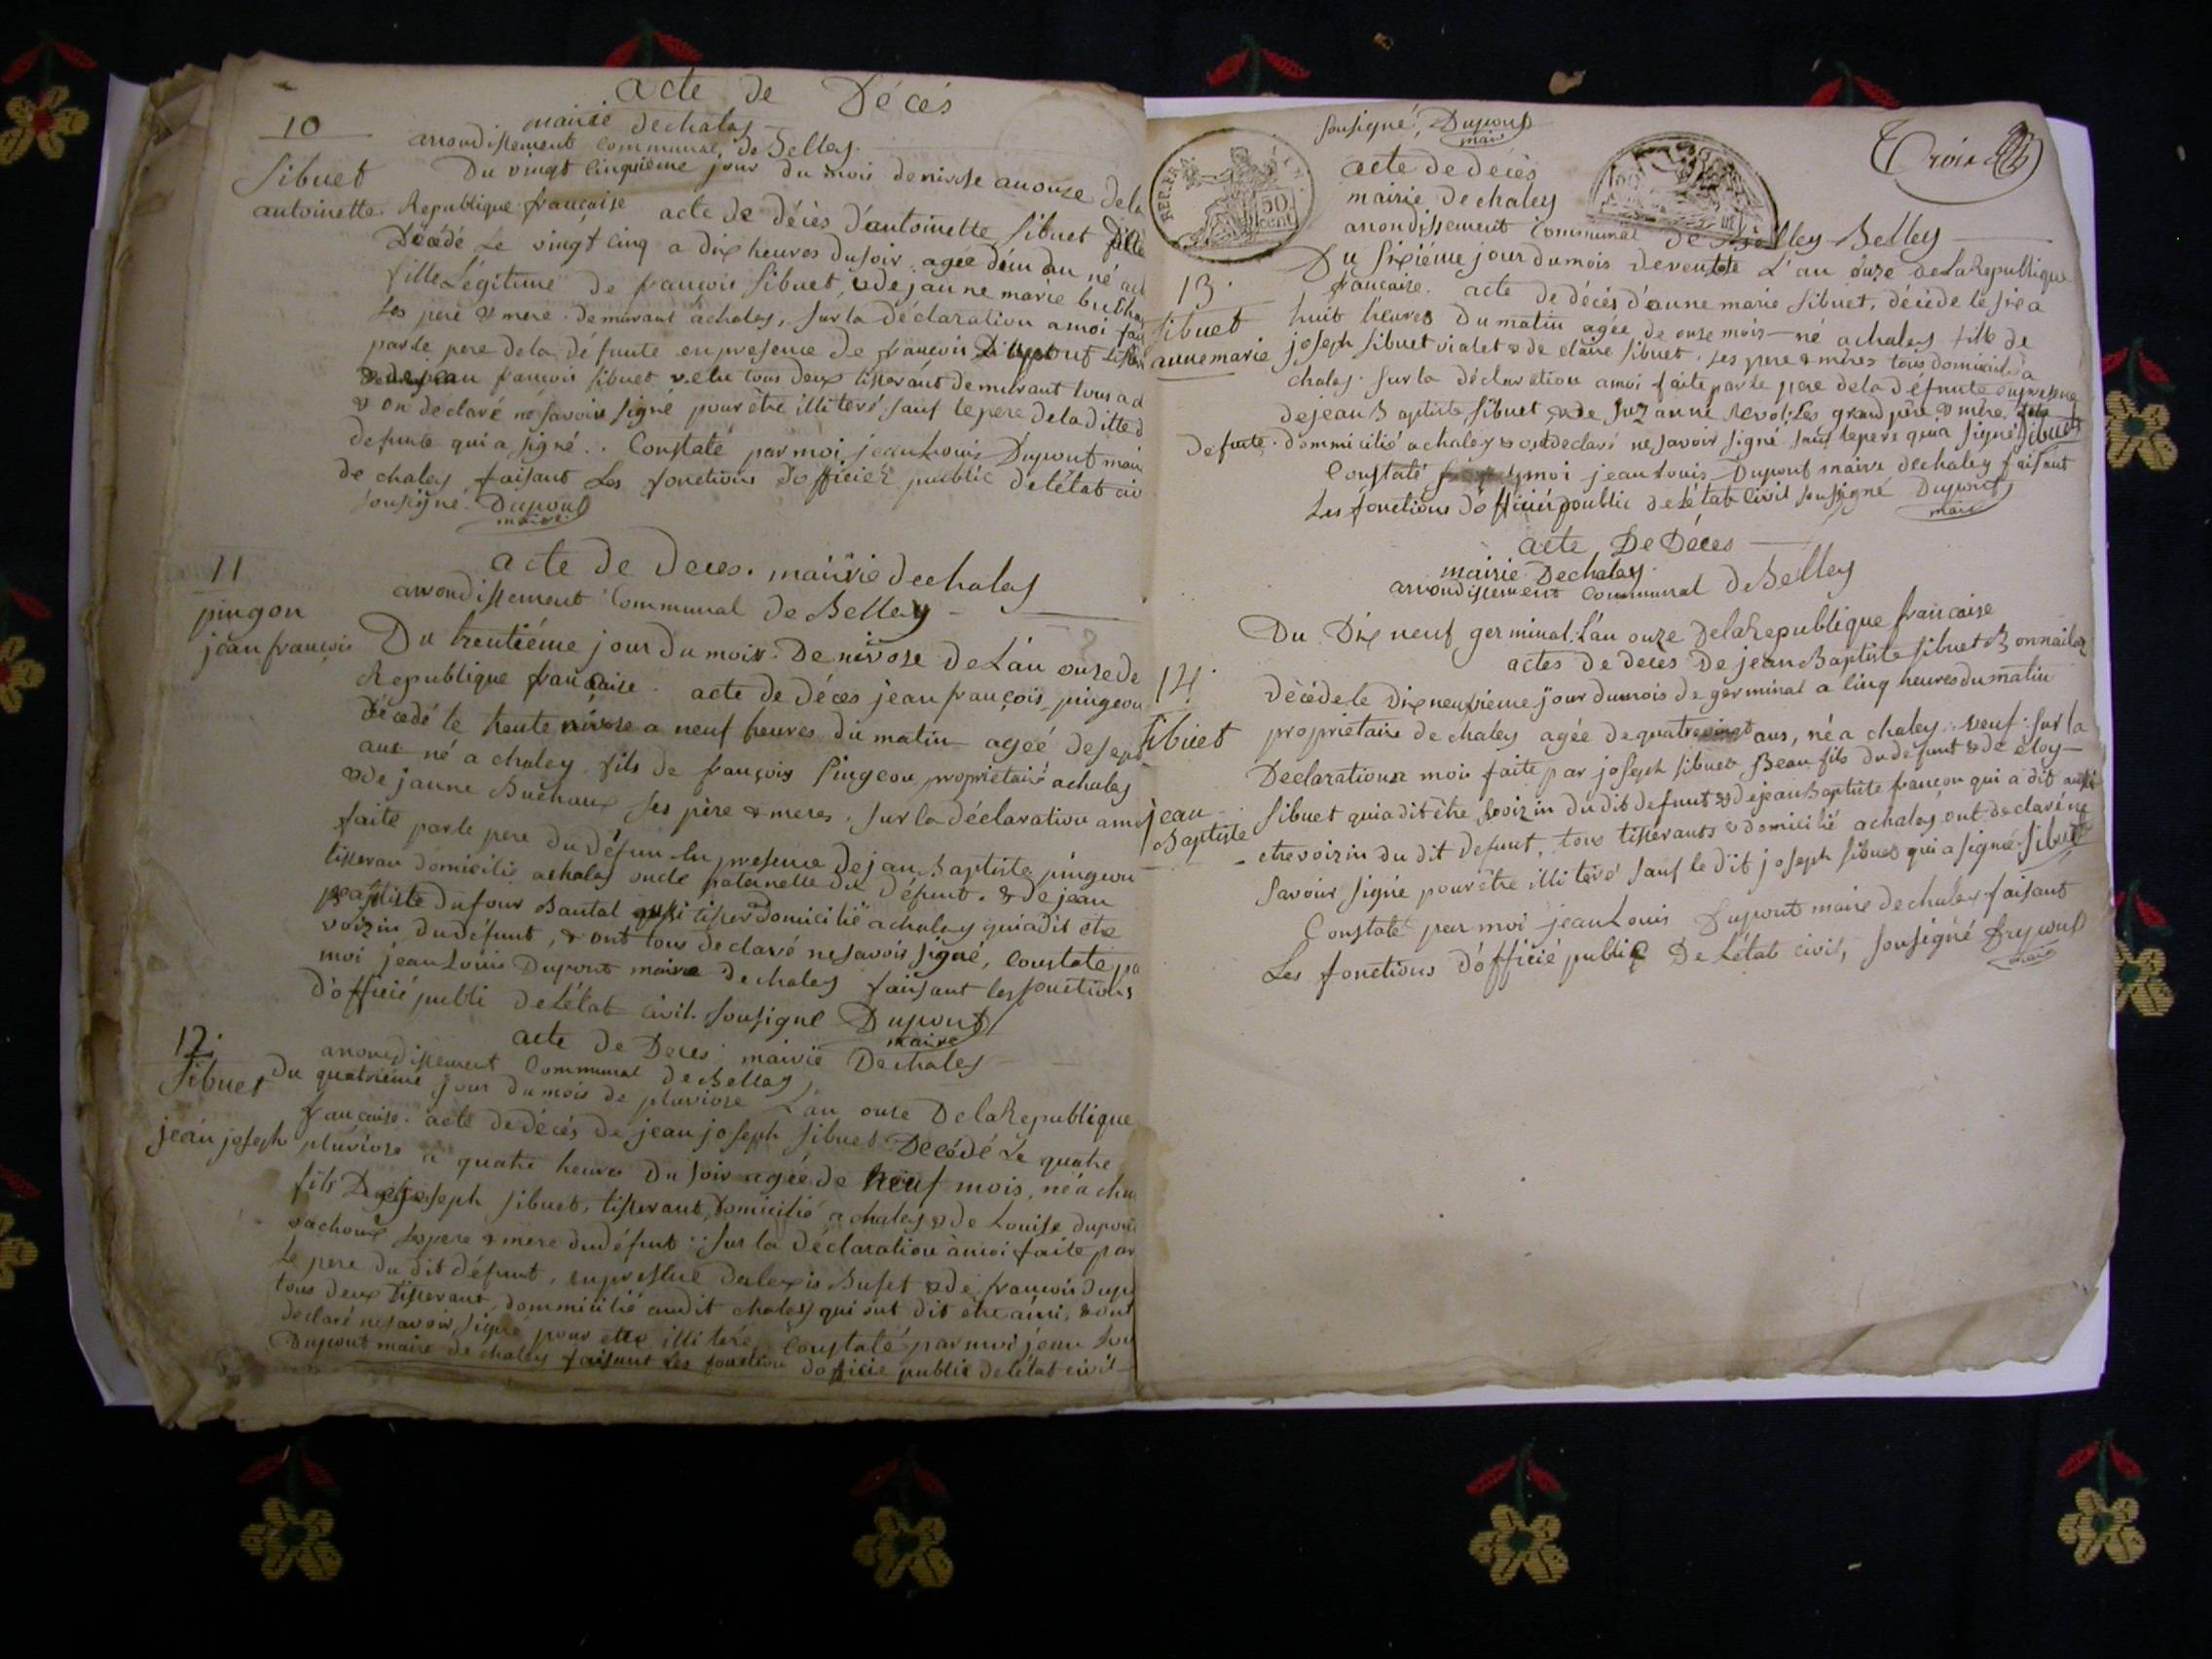 acte de Décés
10
mairie de chaley
arrondissement communal de Belley.
Sibuet
antoinette
Du vingt cinquième jour du mois de nivose an onze de la
Republique française acte de décès d'antoinette Sibuet fille
Décédé Le vingt cinq a dix heures du soir, agée d'un an né a
fille Légitime de françois Sibuet, & de jaunne marie
Ses pere & mere demurant a chaley, sur la déclaration a moi
par le pere de la défunte en presence de françois Dupont
françois Sibuet velu tous deux tisserant demurant tous a
& on déclaré ne savoir signé pour être illiteré sauf le pere de la ditte
defunte qui a signé. Constaté par moi jean Louis Dupont
de chaley faisant Les fonctions d'officier public de l'état
sousigné. Dupont
maire
11
pingon
jean françois
acte de Deces. mairie de chaley
arrondissement Communal de Belley
Du trentiéme jour du mois De nivose de L'an onze de
Republique française. acte de déces jean françois pingeon
Décedé le trente nivose a neuf heures du matin agéé de sept
ans né a chaley fils de françois Pingeon, proprietaire a chaley
& de jeanne Buchaux ses père & meres. sur la déclaration a moi
faite par le pere du défun en presence de jean Baptiste pingeon
tisseran domicilié a chaley oncle paternelle du défunt. & de jean
Baptiste Dufour Bantal aussi tisser domicilié a chaley qui a dit etre
voizin du défunt, & ont tous declaré ne savoir signé, constate pa
moi jean Louis Dupont maire de chaley faisant les fonctions
d'officié publi de L'état civil. sousigné Dupont
maire
12.
Sibuet
jean joseph
acte de Deces mairie De chaley
arrondissement Communal de Belley
Du quatriéme jour du mois de pluviose L'an onze De la Republique
française. acte de décés de jean joseph Sibuet Decédé Le quatre
pluviose a quatre heures Du soir agée de neuf mois, né a
fils De joseph Sibuet, tisserant, domicilié a chaley & de Louise
ses pere & mere du défunt. Sur la déclaration à moi faite par
Le pere du dit défunt, en presence d'alexis Buset & de françois
tous deux tisserant, dommicilié au dit chaley qui ont dit être ami, & ont
declaré ne savoir signé pour etre illiteré, Constaté par moi jean
Dupont maire de chaley faisant Les fonction d'officie public de l'état civil
sousigné, Dupont
maire
REP. FRA.
50
cent
acte de décès
mairie de chaley
arrondissement Communal de Belley Belley
13.
Sibuet
anne marie
Du sixiéme jour du mois de ventose L'an onze de La Republique
française. acte de décès d'anne marie Sibuet, décéde le six a
huit heures du matin agée de onze mois né a chaley fille de
joseph Sibuet vialet & de claire Sibuet. ses pere & mères tous domicilié a
chaley. sur la déclaration a moi faite par le pere de la défunte en presence
de jean Baptiste Sibuet & de suzanne Revol. Les grand père & mère de la
defunte. dommicilié a chaley & ont declaré ne savoir signé sauf le pere qui a signé Sibuet
Constaté par moi jean Louis Dupont maire de chaley faisant
Les fonctions d'officier public de L'état civil sousigné Dupont
maire
acte De Déces
mairie De chaley.
arrondissement Communal De Belley
14.
Sibuet
jean
Baptiste
Du Dix neuf germinal L'an onze De La Republique française
actes de decès De jean Baptiste Sibuet
Décéde le Dix neuvieme jour du mois de germinal a cinq heures du matin
proprietaire de chaley agée de quatre ans, né a chaley. veuf. sur la
Declaration a moi faite par joseph Sibuet Beau fils du defunt & de eloy
Sibuet qui a dit être voizin du dit defunt & de jean Baptiste françon qui a dit aussi
etre voizin du dit defunt, tous tisserants & domicilié a chaley ont declaré ne
savoir signé pour être illiteré sauf le dit joseph Sibuet qui a signé. Sibuet
Constaté par moi jean Louis Dupont maire de chaley faisant
Les fonctions d'officié public De L'état civil, sousigné Dupont
maire